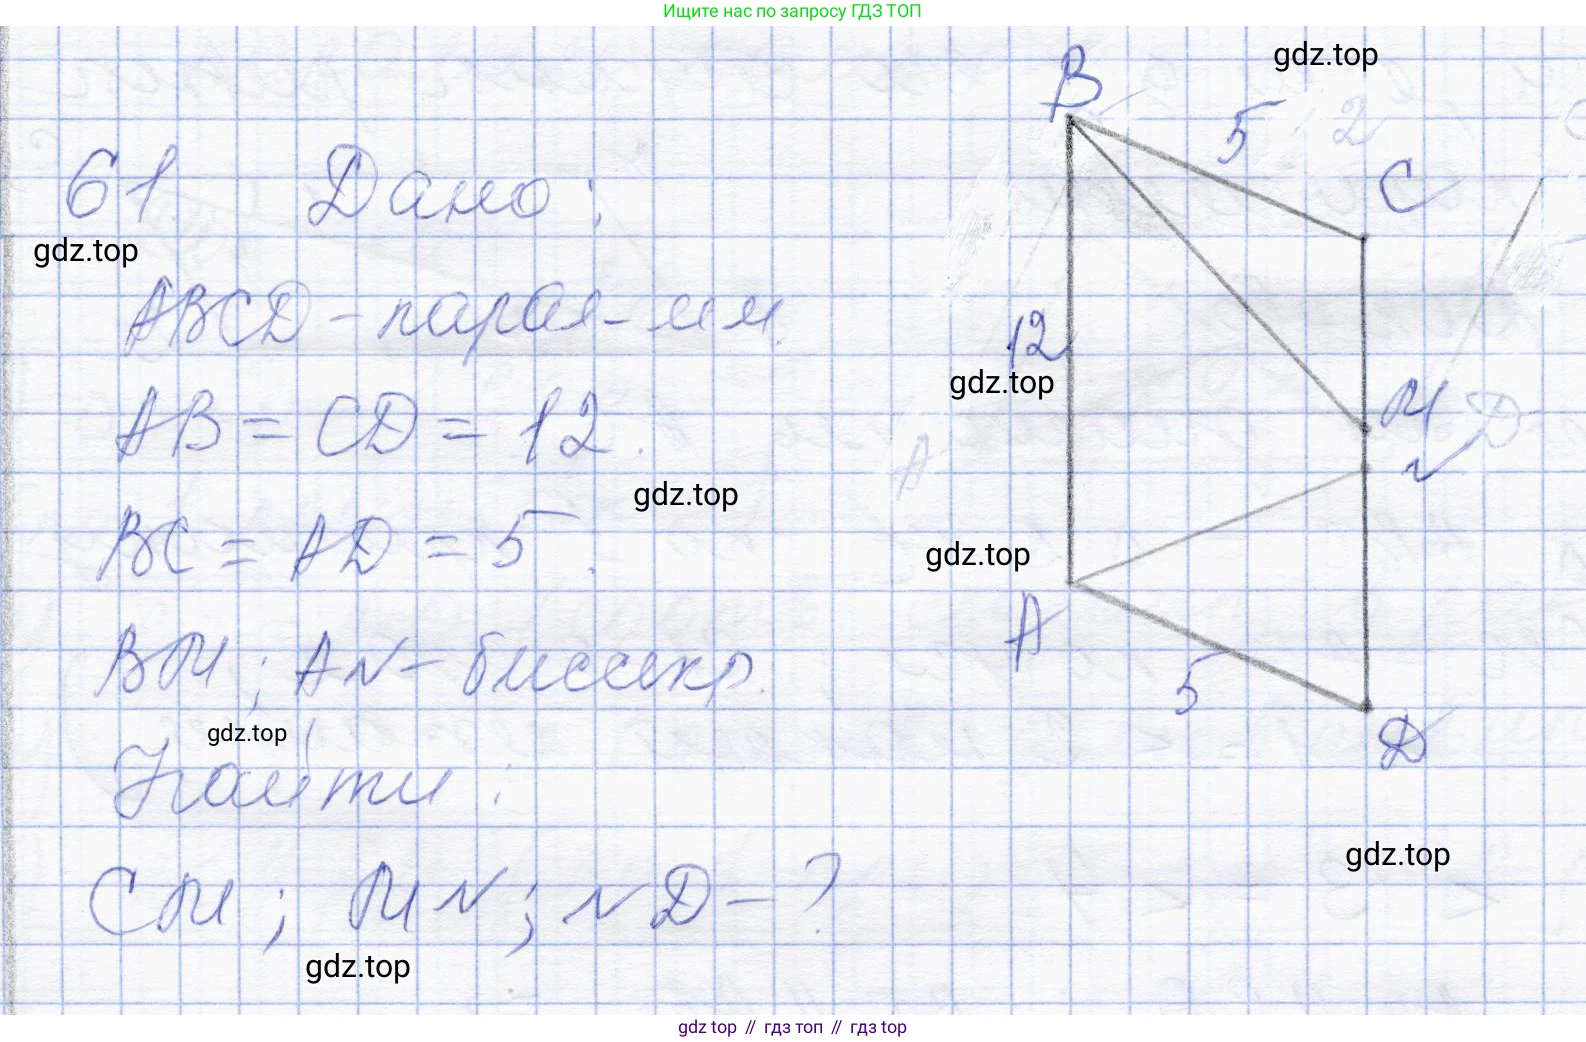 Ищите нас по запросу ГДЗ ТОП
gdz.top
B
5
C
61 Дано:
gdz.top
ABCD - парал-мм.
12
gdz.top
M
AB = CD = 12.
N
gdz.top
BC = AD = 5.
gdz.top
A
BM; AN - биссектр.
5
gdz.top
D
Найти:
gdz.top
CM; MN; ND - ?
gdz.top
gdz top // гдз топ // gdz top